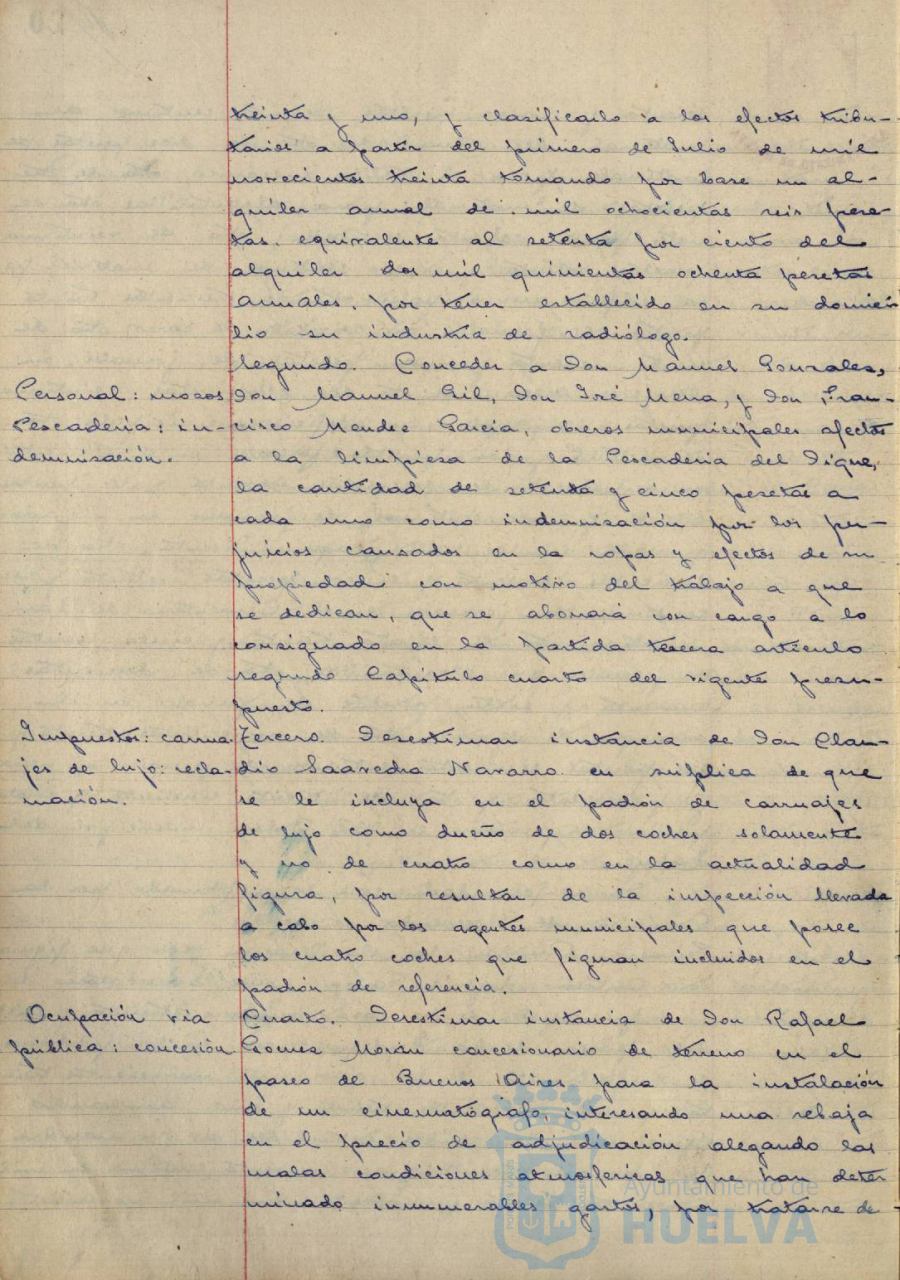 treinta y uno, y clasificarlo a los efectos tribu-
tarios a partir del primero de Julio de mil
novecientos treinta tomando por base un al-
quiler anual de mil ochocientas seis pese-
tas equivalente al setenta por ciento del
alquiler dos mil quinientas ochenta pesetas
anuales, por tener establecido en su domici
lio su industria de radiólogo.
Segundo. Conceder a Don Manuel Gonzales,
Personal: mozos
Pescaderia: in-
demnisación.
Don Manuel Gil, Don José Mena, y Don Fran-
cisco Mendez Garcia, obreros municipales afectos
a la limpiesa de la Pescaderia del Dique,
la cantidad de setenta y cinco pesetas a
cada uno como indemnisación por los per-
juicios causados en la ropas y efectos de su
propiedad con motivo del trabajo a que
se dedican, que se abonará con cargo a lo
consignado en la partida tercera articulo
segundo Capitulo cuarto del vigente presu-
puesto.
Impuestos: carrua-
jes de lujo: recla-
mación.
Tercero. Desestimar instancia de Don Clau-
dio Saavedra Navarro en súplica de que
se le incluya en el padrón de carruajes
de lujo como dueño de dos coches solamente
y no de cuatro como en la actualidad
figura, por resultar de la inspección llevada
a cabo por los agentes municipales que posee
los cuatro coches que figuran incluidos en el
padrón de referencia.
Ocupación via
pública: concesión
Cuarto. Desestimar instancia de Don Rafael
Gomez Morán concesionario de terreno en el
paseo de Buenos Aires para la instalación
de un cinematógrafo, interesando una rebaja
en el precio de adjudicación alegando las
malas condiciones atmosfericas que han deter
minado innumerables gastos, por tratarse de
Ayuntamiento de
HUELVA